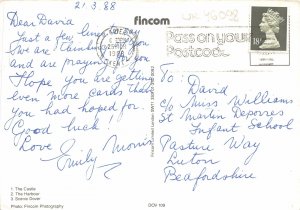 21 3 88
fincom
Dear David
Just a few lines to say
We are thinking of you
and are praying for you
Hope you are getting
even more cards than
you had hoped for
Good luck!
Love
Emily Morris
Pass on your
Postcode
18
To:
David
c/o Miss Williams
St Martin Deporres
Infant School
Pasture Way
Luton
Beafordshire
1 The Castle
2 The Harbour
Photo: Fincom Photography
DOV 109